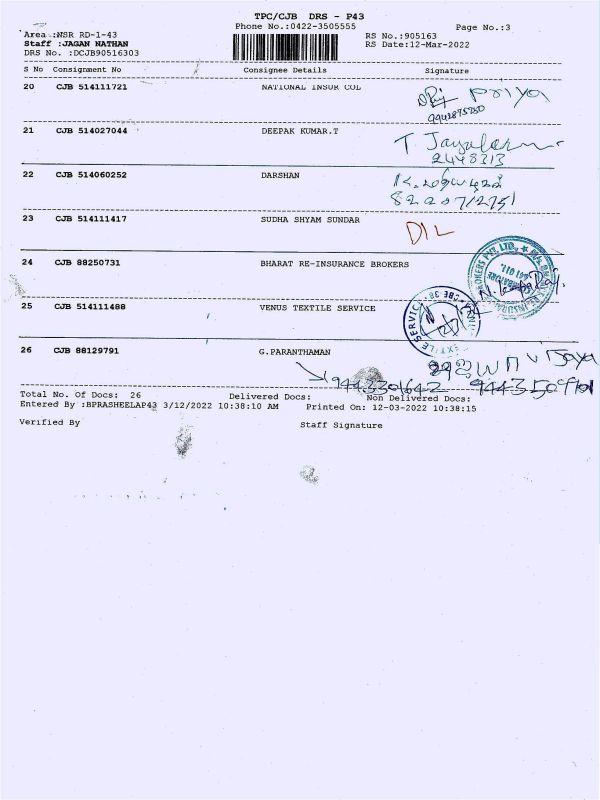 TPC/CJB DRS - P43
Phone No.:0422-3505555 Page No.:3
Area :NSR RD-1-43 RS No.:905163
Staff :JAGAN NATHAN RS Date:12-Mar-2022
DRS No. :DCJB90516303
S No Consignment No Consignee Details Signature
20 CJB 514111721 NATIONAL INSUR COL Priya
21 CJB 514027044 DEEPAK KUMAR.T T
2448313
22 CJB 514060252 DARSHAN
23 CJB 514111417 SUDHA SHYAM SUNDAR D/L
24 CJB 88250731 BHARAT RE-INSURANCE BROKERS
25 CJB 514111488 VENUS TEXTILE SERVICE
26 CJB 88129791 G.PARANTHAMAN
Total No. Of Docs: 26 Delivered Docs: Non Delivered Docs:
Entered By :BPRASHEELAP43 3/12/2022 10:38:10 AM Printed On: 12-03-2022 10:38:15
Verified By Staff Signature